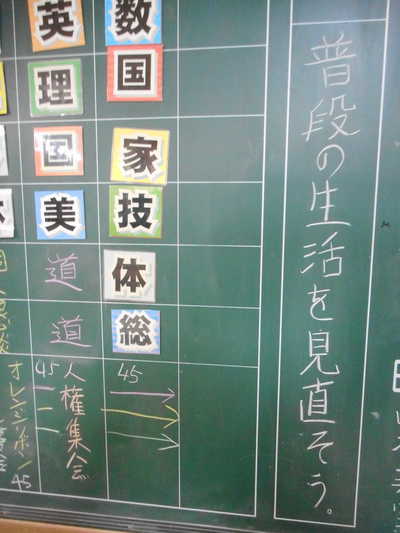 普段の生活を見直そう。
数
国
家
技
体
総
45
英
理
国
美
道
道
45
人権集会
オレンジリボン
45